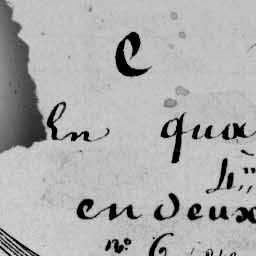 C
En qua
4
en deux
no. 6